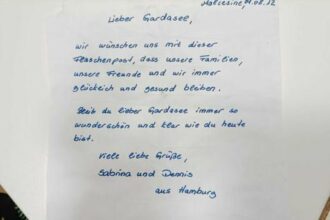 Malcesine, 01.08.12
Lieber Gardasee,
wir wünschen uns mit dieser
Flaschenpost, dass unsere Familien,
unsere Freunde und wir immer
glücklich und gesund bleiben.
Bleib du lieber Gardasee immer so
wunderschön und klar wie du heute
bist.
Viele liebe Grüße,
Sabrina und Dennis
aus Hamburg